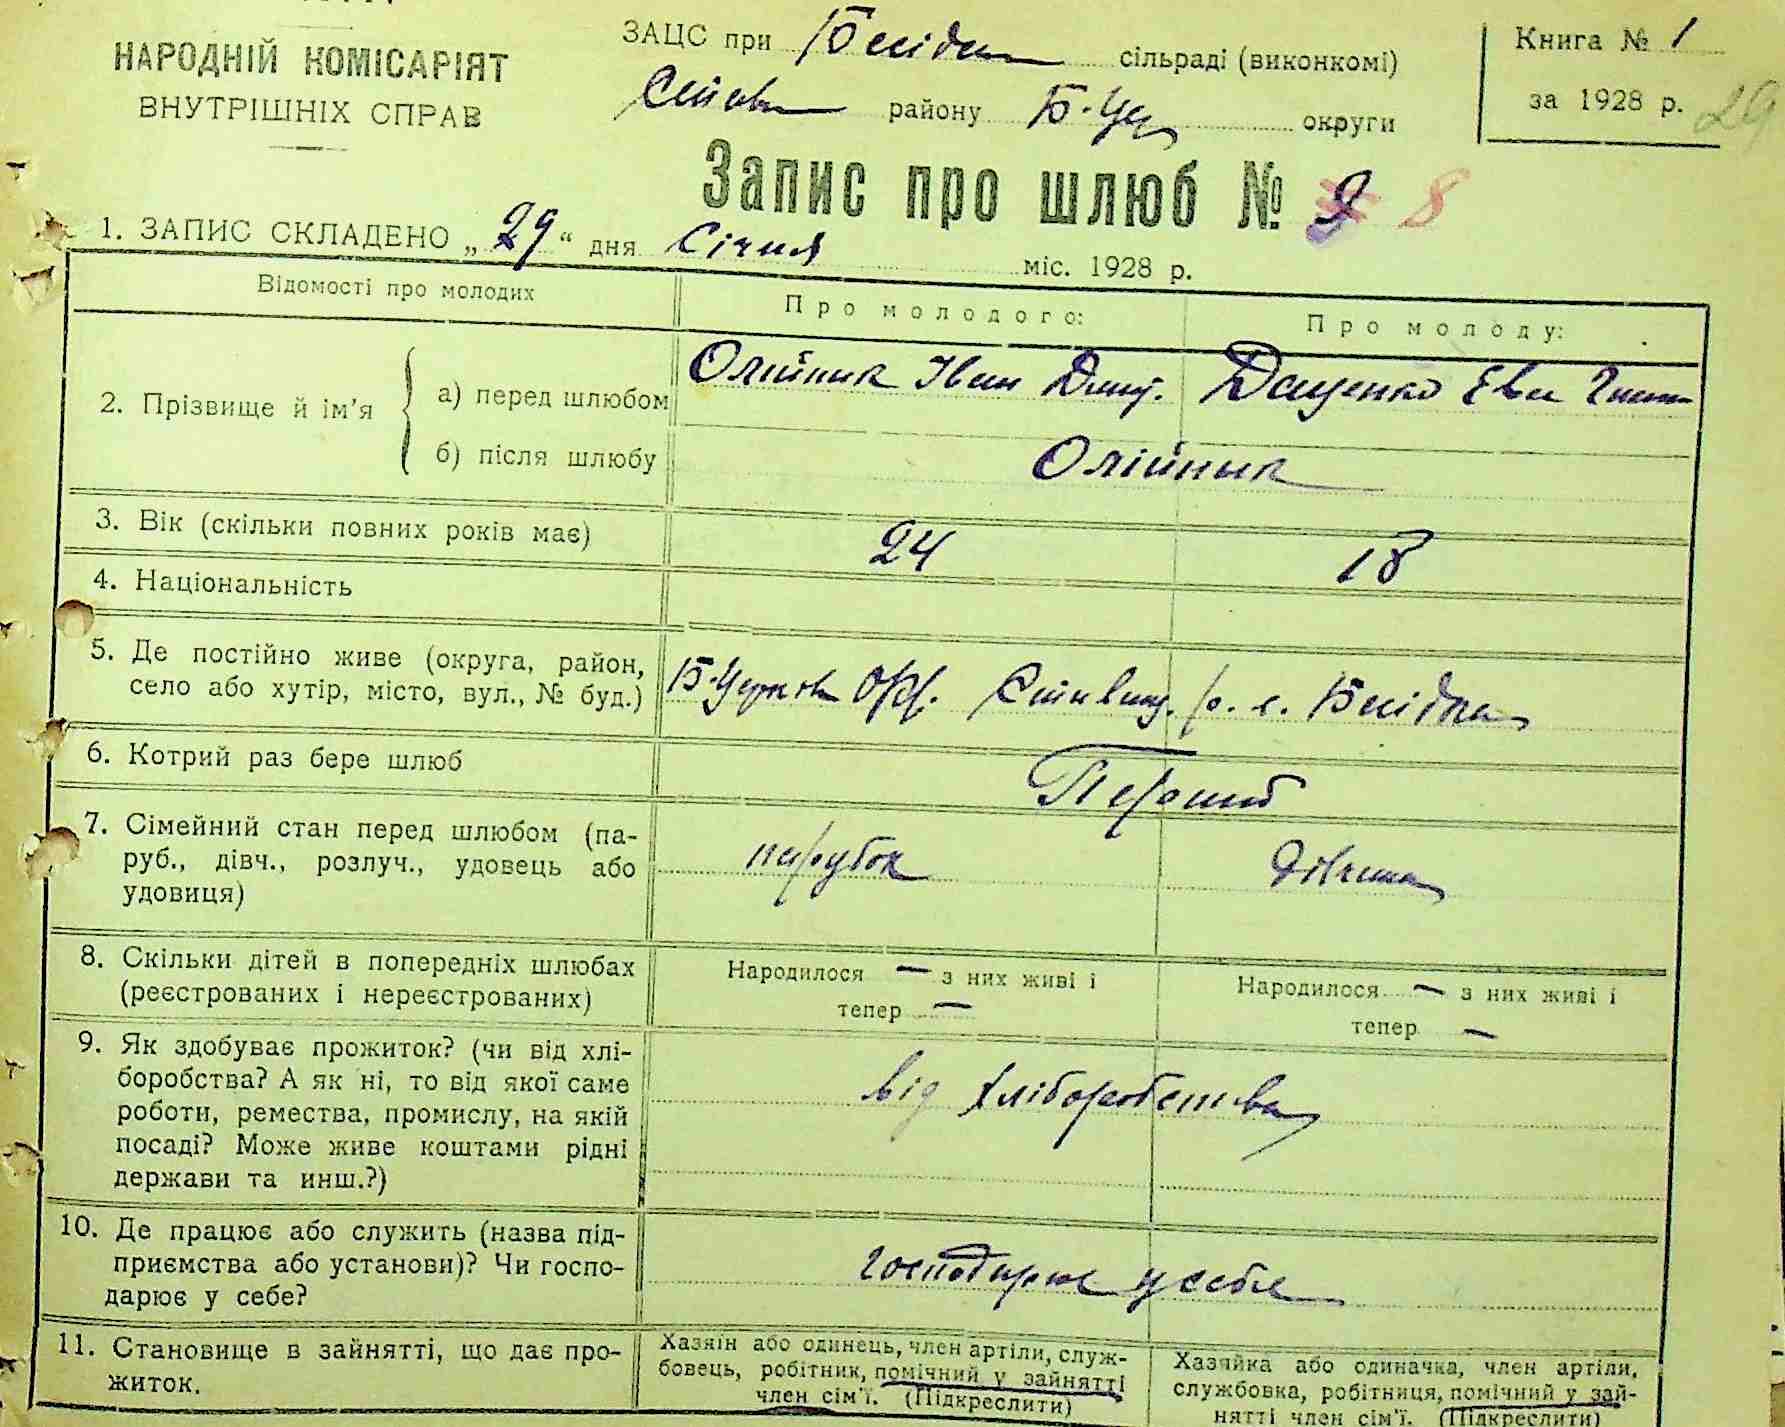 НАРОДНІЙ КОМІСАРІЯТ
ВНУТРІШНІХ СПРАВ
ЗАЦС при Бесідка сільраді (виконкомі)
району Б-Цер. округи
Книга № 1
за 1928 р. 29
Запис про шлюб № 9 8
1. ЗАПИС СКЛАДЕНО „29“ дня Січня міс. 1928 р.
Відомості про молодих
Про молодого:
Про молоду:
2. Прізвище й ім'я
а) перед шлюбом
Олійник Іван Дмит.
Даценко Ева
б) після шлюбу
Олійник
3. Вік (скільки повних років має)
24
18
4. Національність
5. Де постійно живе (округа, район,
село або хутір, місто, вул., № буд.)
Б-Церков окр. Ставищ. р. с. Бесідка
6. Котрий раз бере шлюб
Перший
7. Сімейний стан перед шлюбом (па-
руб., дівч., розлуч., удовець або
удовиця)
парубок
дівчина
8. Скільки дітей в попередніх шлюбах
(реєстрованих і нереєстрованих)
Народилося — з них живі і
тепер —
Народилося — з них живі і
тепер —
9. Як здобуває прожиток? (чи від хлі-
боробства? А як ні, то від якої саме
роботи, ремества, промислу, на якій
посаді? Може живе коштами рідні
держави та инш.?)
від хліборобства
10. Де працює або служить (назва під-
приємства або установи)? Чи госпо-
дарює у себе?
господарює у себе
11. Становище в зайнятті, що дає про-
житок.
Хазяїн або одинець, член артіли, служ-
бовець, робітник, помічний у зайнятті
член сім'ї. (Підкреслити)
Хазяйка або одиначка, член артіли,
службовка, робітниця, помічний у зай-
нятті член сім'ї. (Підкреслити)